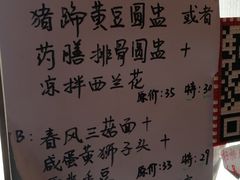 猪蹄黄豆圆盅 或者
药膳排骨圆盅 +
凉拌西兰花
原价:35 特:30
B: 春风三菇面 +
咸蛋黄狮子头 +
原价:33 特:29